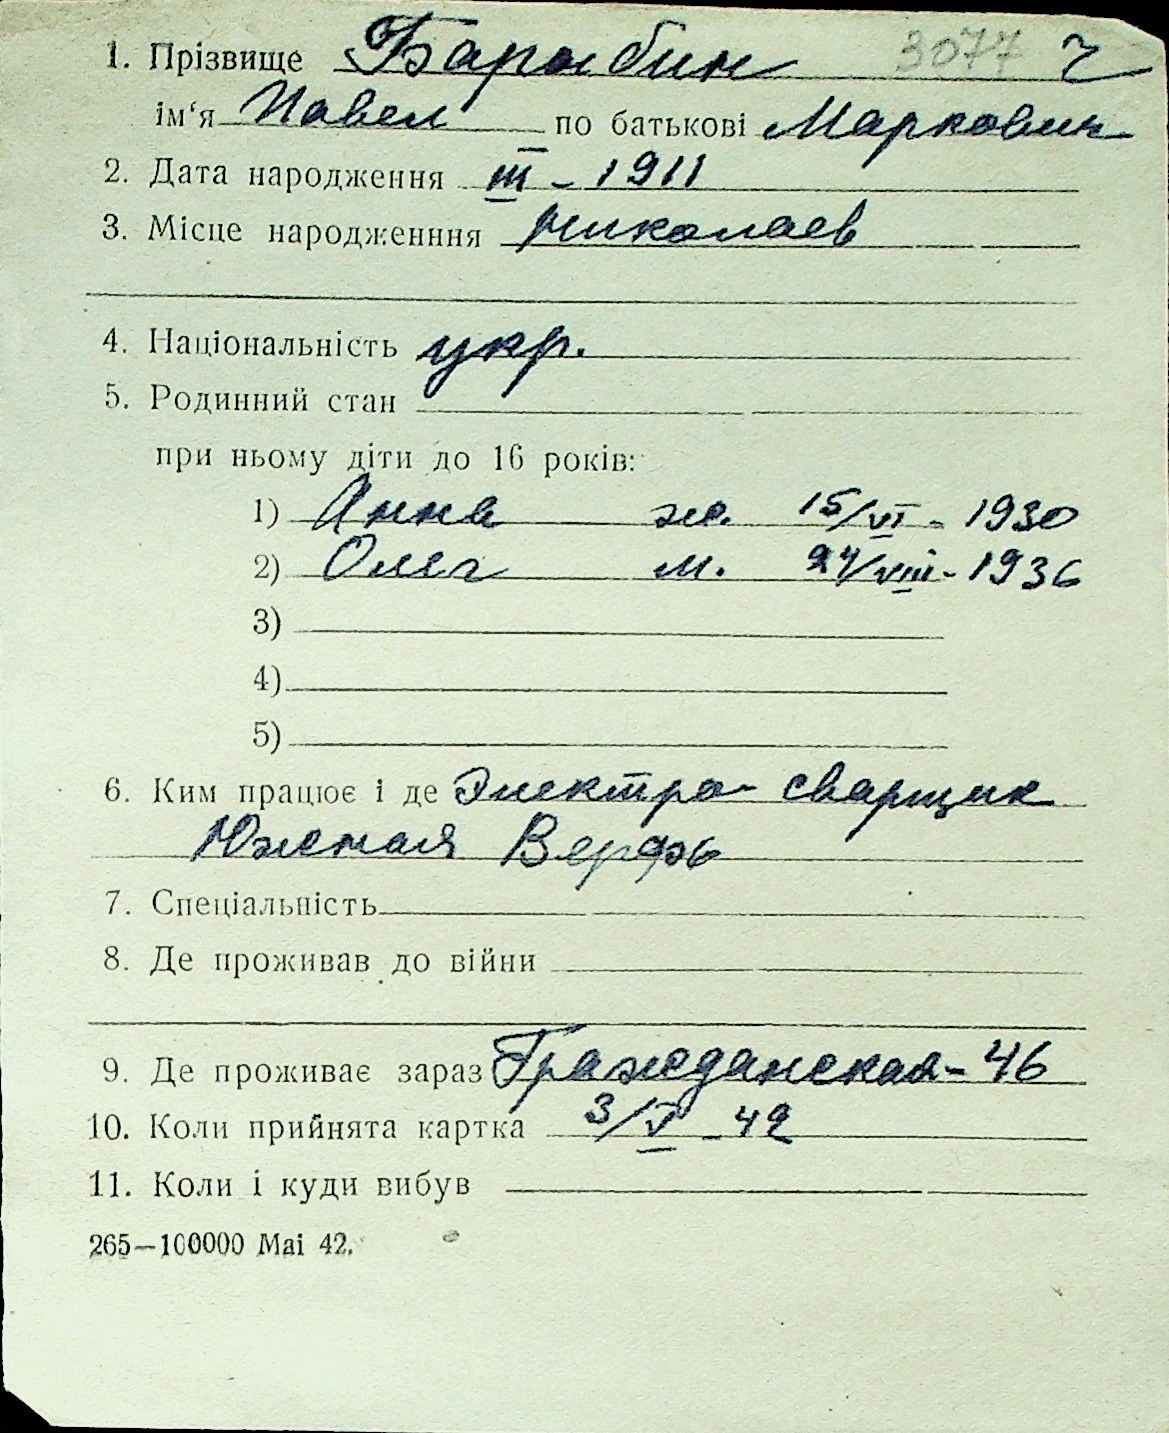 1. Прізвище Барабин 3077 г
ім‘я Павел по батькові Маркович
2. Дата народження III - 1911
3. Місце народженння Николаев
4. Національність укр.
5. Родинний стан
при ньому діти до 16 років:
1) Анна ж. 15/VI - 1930
2) Олег м. 24/VIII - 1936
3)
4)
5)
6. Ким працює і де Электро-сварщик
Южная Верфь
7. Спеціальність
8. Де проживав до війни
9. Де проживає зараз Гражданская - 46
10. Коли прийнята картка 3/V - 42
11. Коли і куди вибув
265—100000 Mai 42.